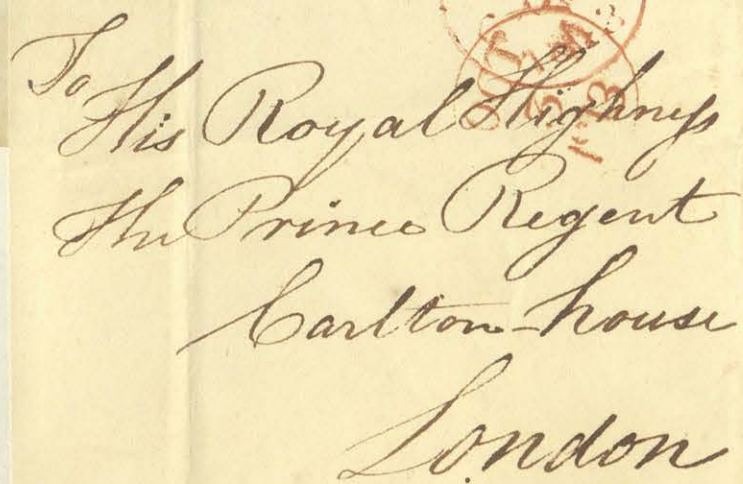 To
His Royal Highness
The Prince Regent
Carlton-house
London